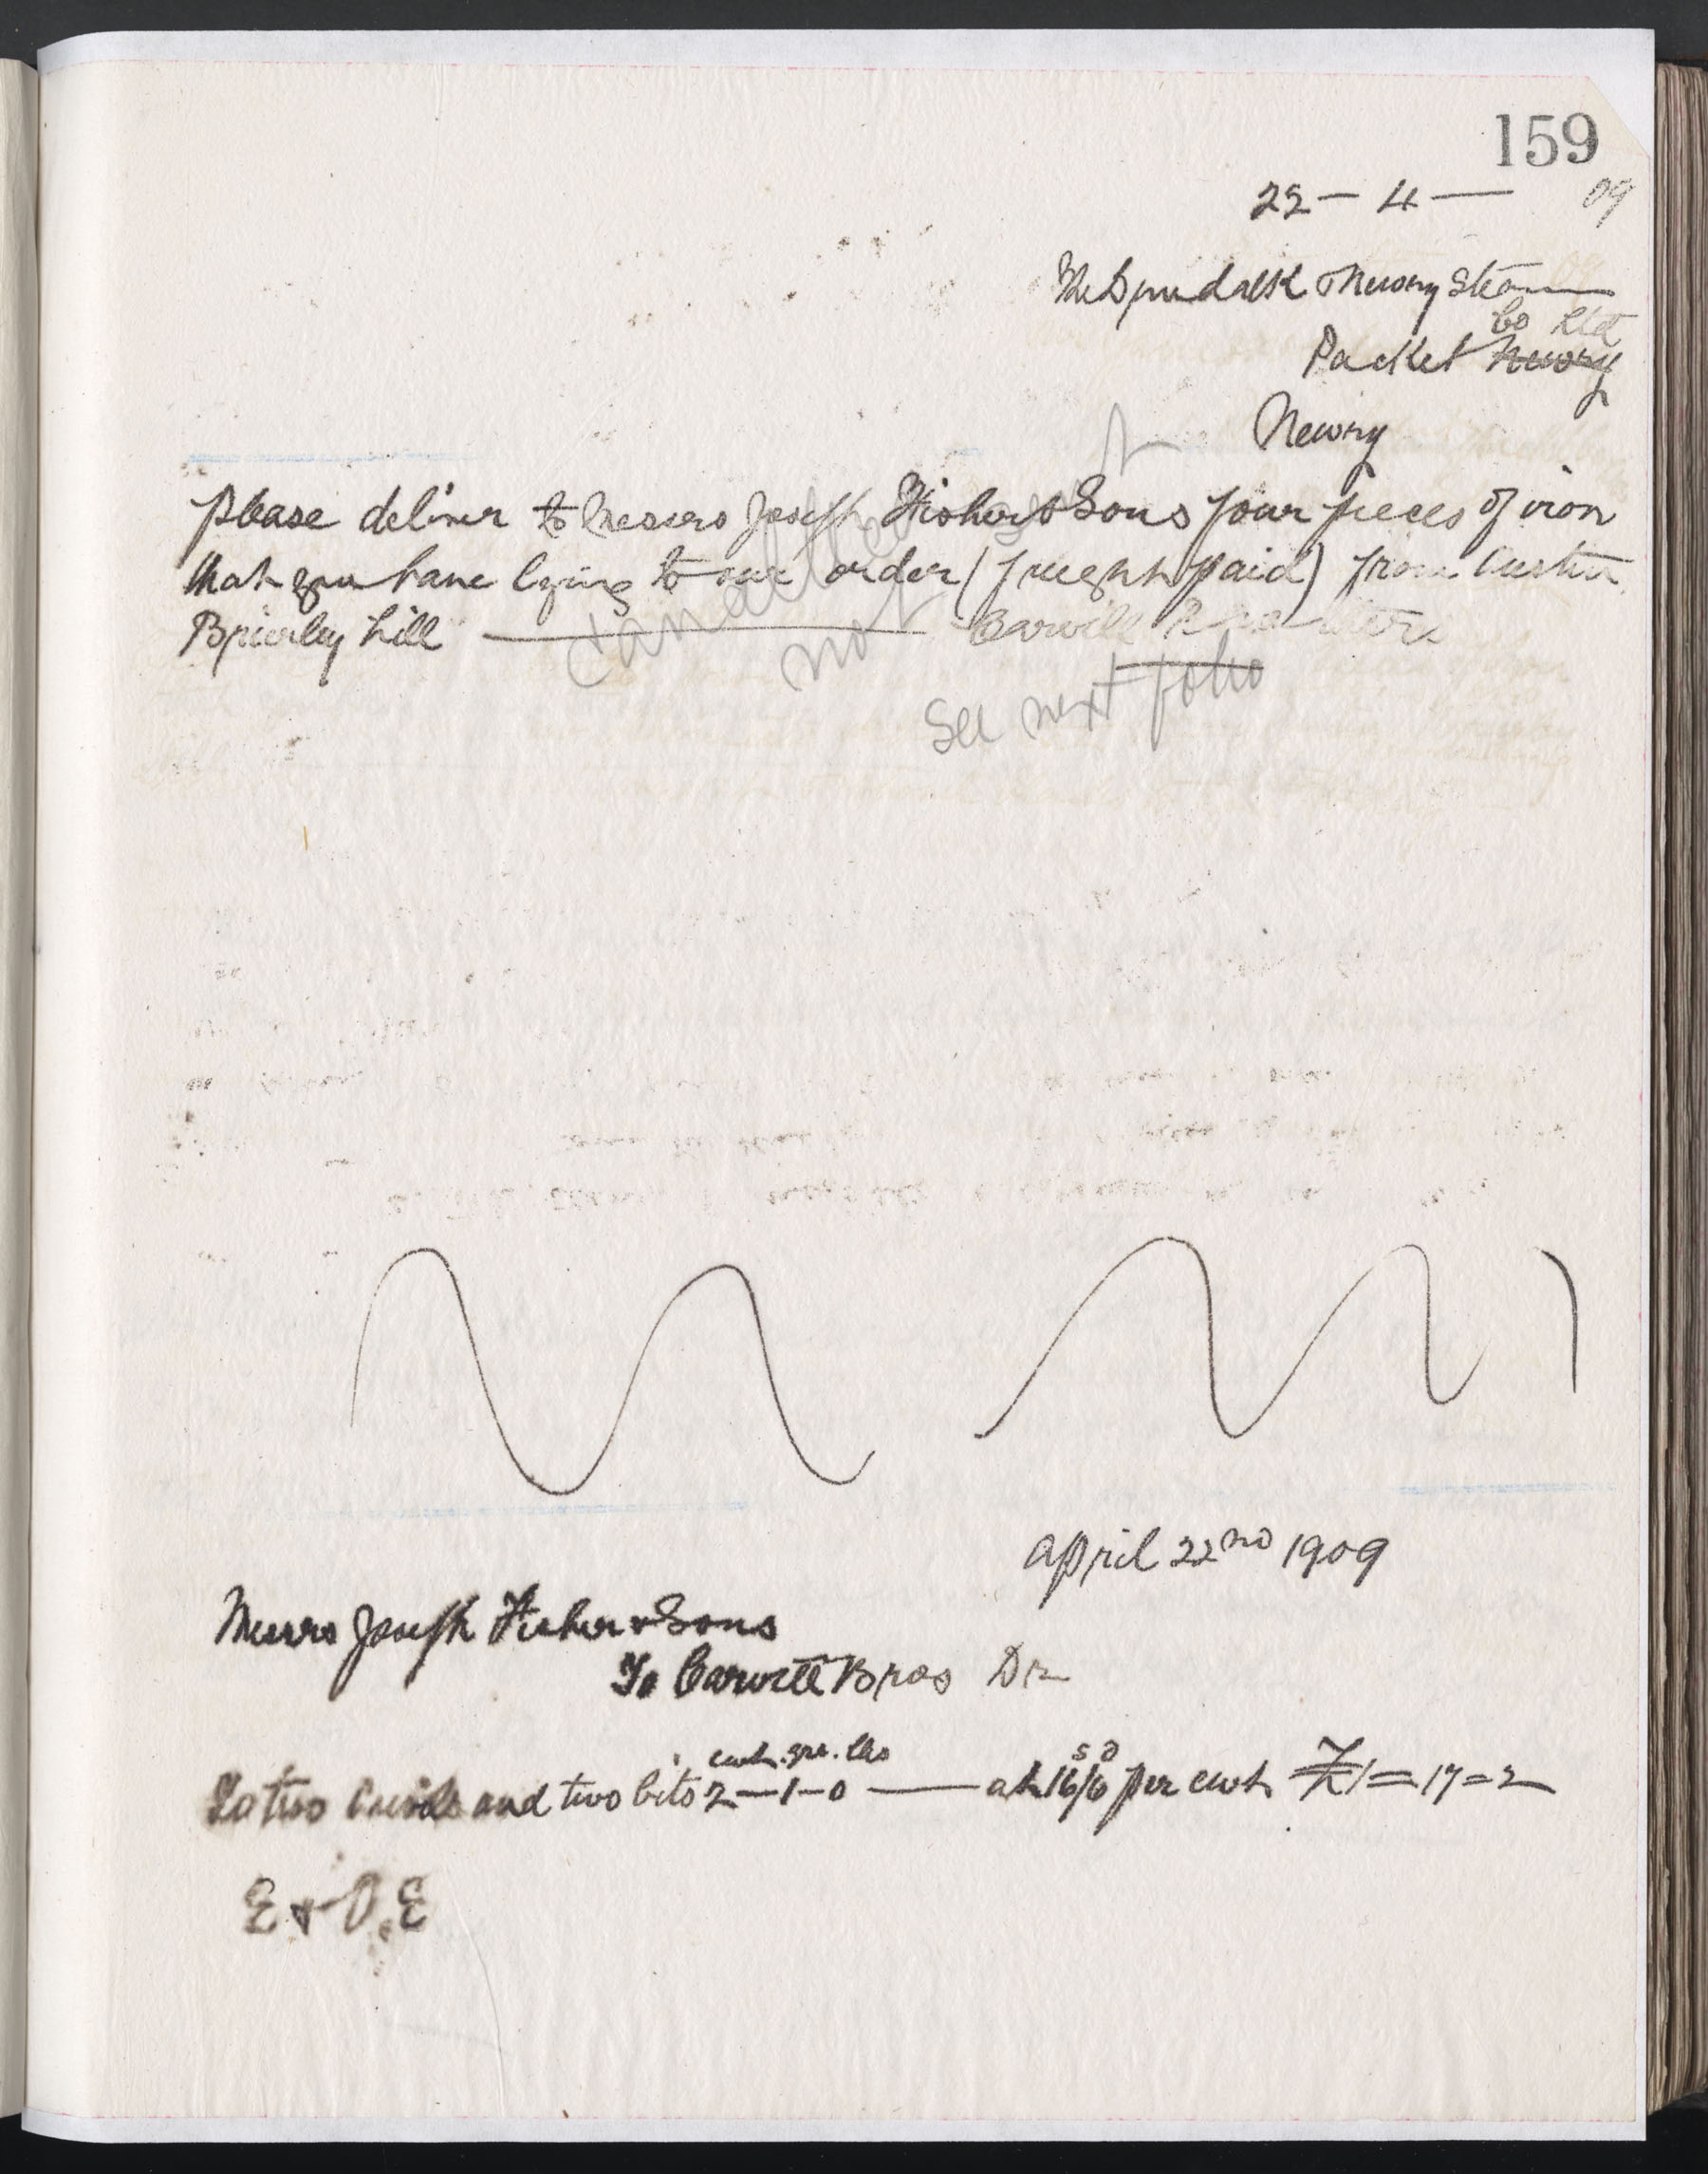 159
22 - 4 - 09
The Dundalk & Newry Steam
Co Ltd
Packet Newry
Newry
Please deliver to Messrs Joseph Fisher & Sons four pieces of iron
that you have lying to our order (freight paid) from
Brierley hill Carvill
Cancelled
not
See next folio
April 22nd 1909
Messrs Joseph Fisher & Sons
To Carvill Bros Dr
cwts. qrs. lbs
s d
To two and two bits 2-1-0 at 16/6 per cwt £1=17=2
E & O.E